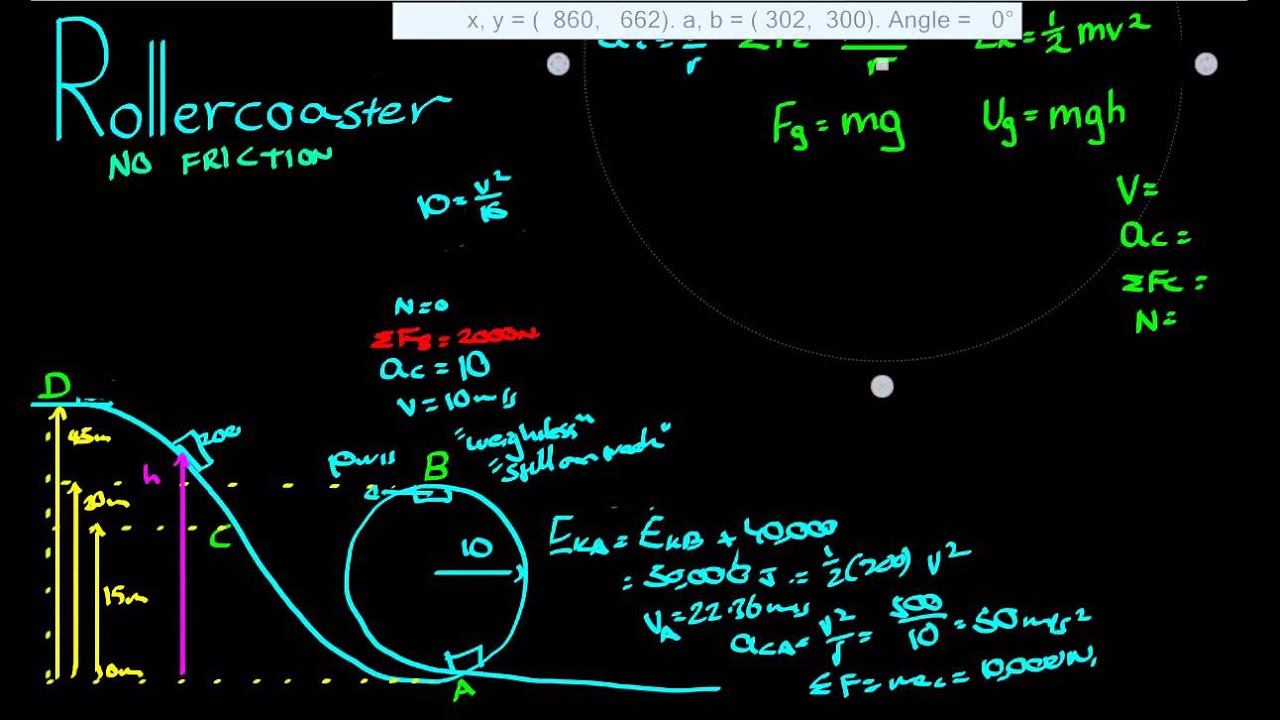 x, y = ( 860, 662). a, b = ( 302, 300). Angle = 0°
= ½ mv²
Rollercoaster
NO FRICTION
Fg = mg
Ug = mgh
10 = v²/
V =
ac =
ΣFc =
N =
N = 0
= 2000N
ac = 10
V = 10 m/s
"weighless"
"still on track"
D
45m
200
h
B
20m
C
10
15m
0m
A
EKA = EKB + 40,000
= 50,000 J = ½(200) v²
VA = 22.36 m/s
acA = v²/r = 500/10 = 50 m/s²
ΣF = mac = 10,000N.